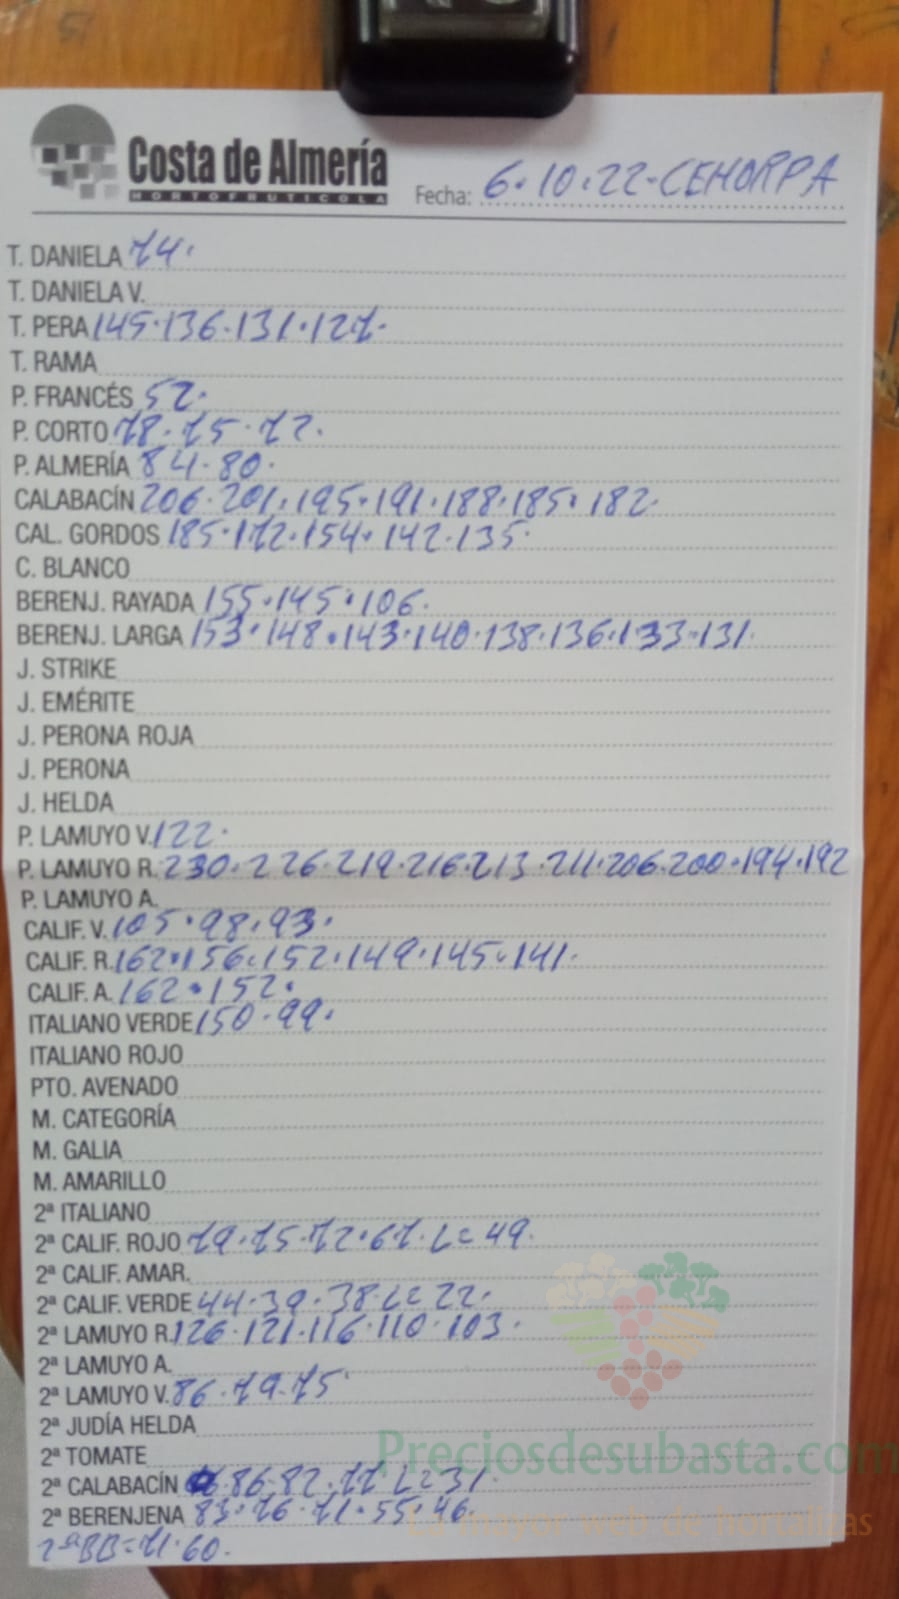 Costa de Almería
HORTOFRUTICOLA
Fecha: 6.10.22-CEHORPA
T. DANIELA 74.
T. DANIELA V.
T. PERA 145.136.131.127.
T. RAMA
P. FRANCÉS 52.
P. CORTO 78.75.72.
P. ALMERÍA 84.80.
CALABACÍN 206.201.195.191.188.185.182.
CAL. GORDOS 185.172.154.142.135.
C. BLANCO
BERENJ. RAYADA 155.145.106.
BERENJ. LARGA 153.148.143.140.138.136.133.131.
J. STRIKE
J. EMÉRITE
J. PERONA ROJA
J. PERONA
J. HELDA
P. LAMUYO V. 122.
P. LAMUYO R. 230.226.219.216.213.211.206.200.194.192
P. LAMUYO A.
CALIF. V. 105.98.93.
CALIF. R. 162.156.152.149.145.141.
CALIF. A. 162.152.
ITALIANO VERDE 150.99.
ITALIANO ROJO
PTO. AVENADO
M. CATEGORÍA
M. GALIA
M. AMARILLO
2ª ITALIANO
2ª CALIF. ROJO 79.75.72.67.L=49.
2ª CALIF. AMAR.
2ª CALIF. VERDE 44.39.38.L=22.
2ª LAMUYO R. 126.121.116.110.103.
2ª LAMUYO A.
2ª LAMUYO V. 86.79.75
2ª JUDÍA HELDA
2ª TOMATE
2ª CALABACÍN 86.82.77 L=31.
2ª BERENJENA 83.76.71.55.46.
2ªBB=71.60.
Preciosdesubasta.com
La mayor web de hortalizas